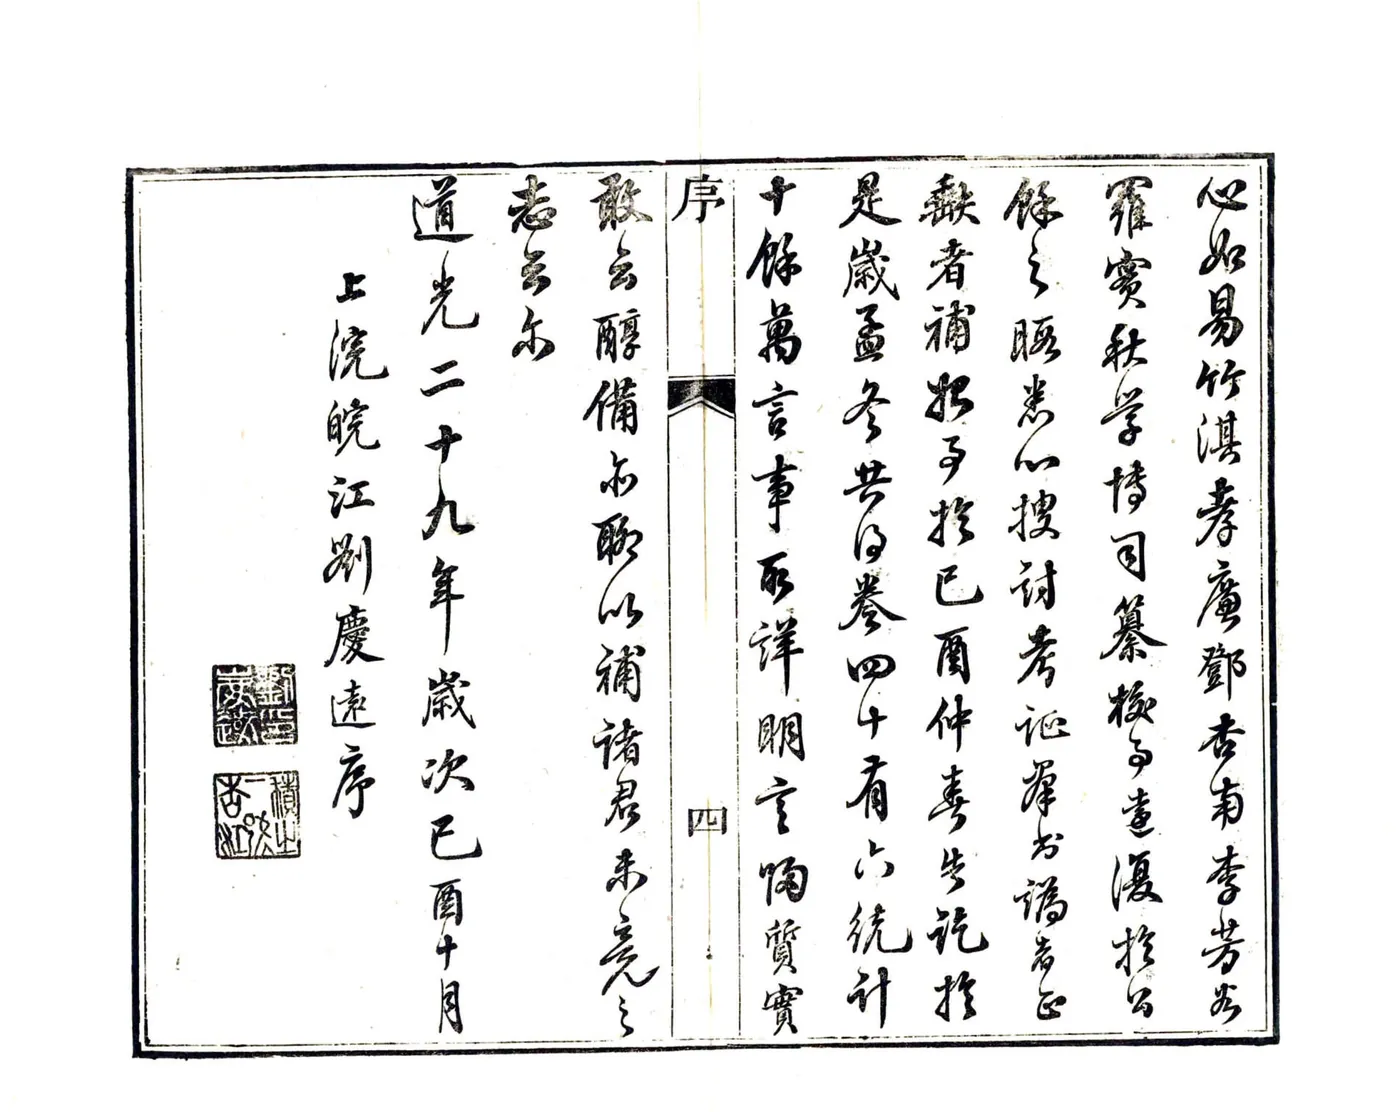 心如易竹淇孝廉鄧杏甫李芳谷
羅實秋學博司纂校予遠復於公
餘之暇悉心搜討考証羣书譌者正
缺者補始事於己酉仲春告訖於
是歲孟冬共得卷四十有六統計
十餘萬言事取詳明言歸質實
序
四
敢云醇備亦聊以補諸君未竟之
志云尔
道光二十九年歲次己酉十月
上浣皖江劉慶遠序